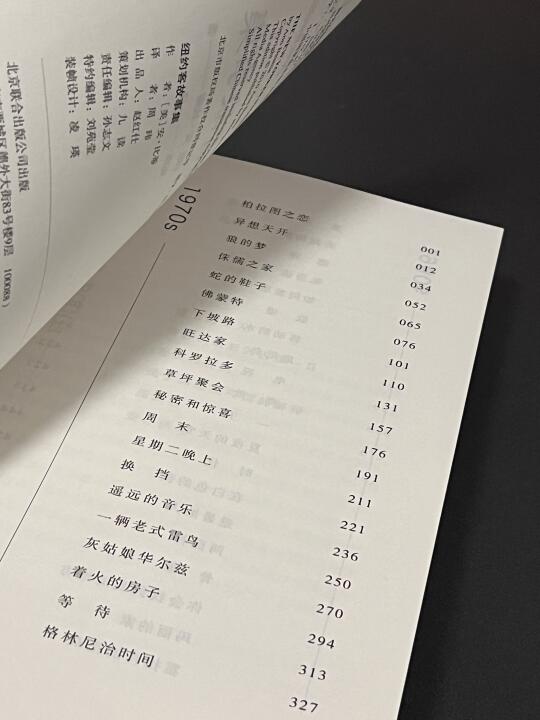 纽约客故事集
作 者：［美］安·比蒂
译 者：周 玮
出 品 人：赵红仕
策划机构：九 读
责任编辑：孙志文
特约编辑：刘苑莹
装帧设计：凌 瑛
北京联合出版公司出版
城区德外大街83号楼9层 100088）
1970s
柏拉图之恋 001
异想天开 012
狼的梦 034
侏儒之家 052
蛇的鞋子 065
佛蒙特 076
下坡路 101
旺达家 110
科罗拉多 131
草坪聚会 157
秘密和惊喜 176
周 末 191
星期二晚上 211
换 挡 221
遥远的音乐 236
一辆老式雷鸟 250
灰姑娘华尔兹 270
着火的房子 294
等 待 313
格林尼治时间 327